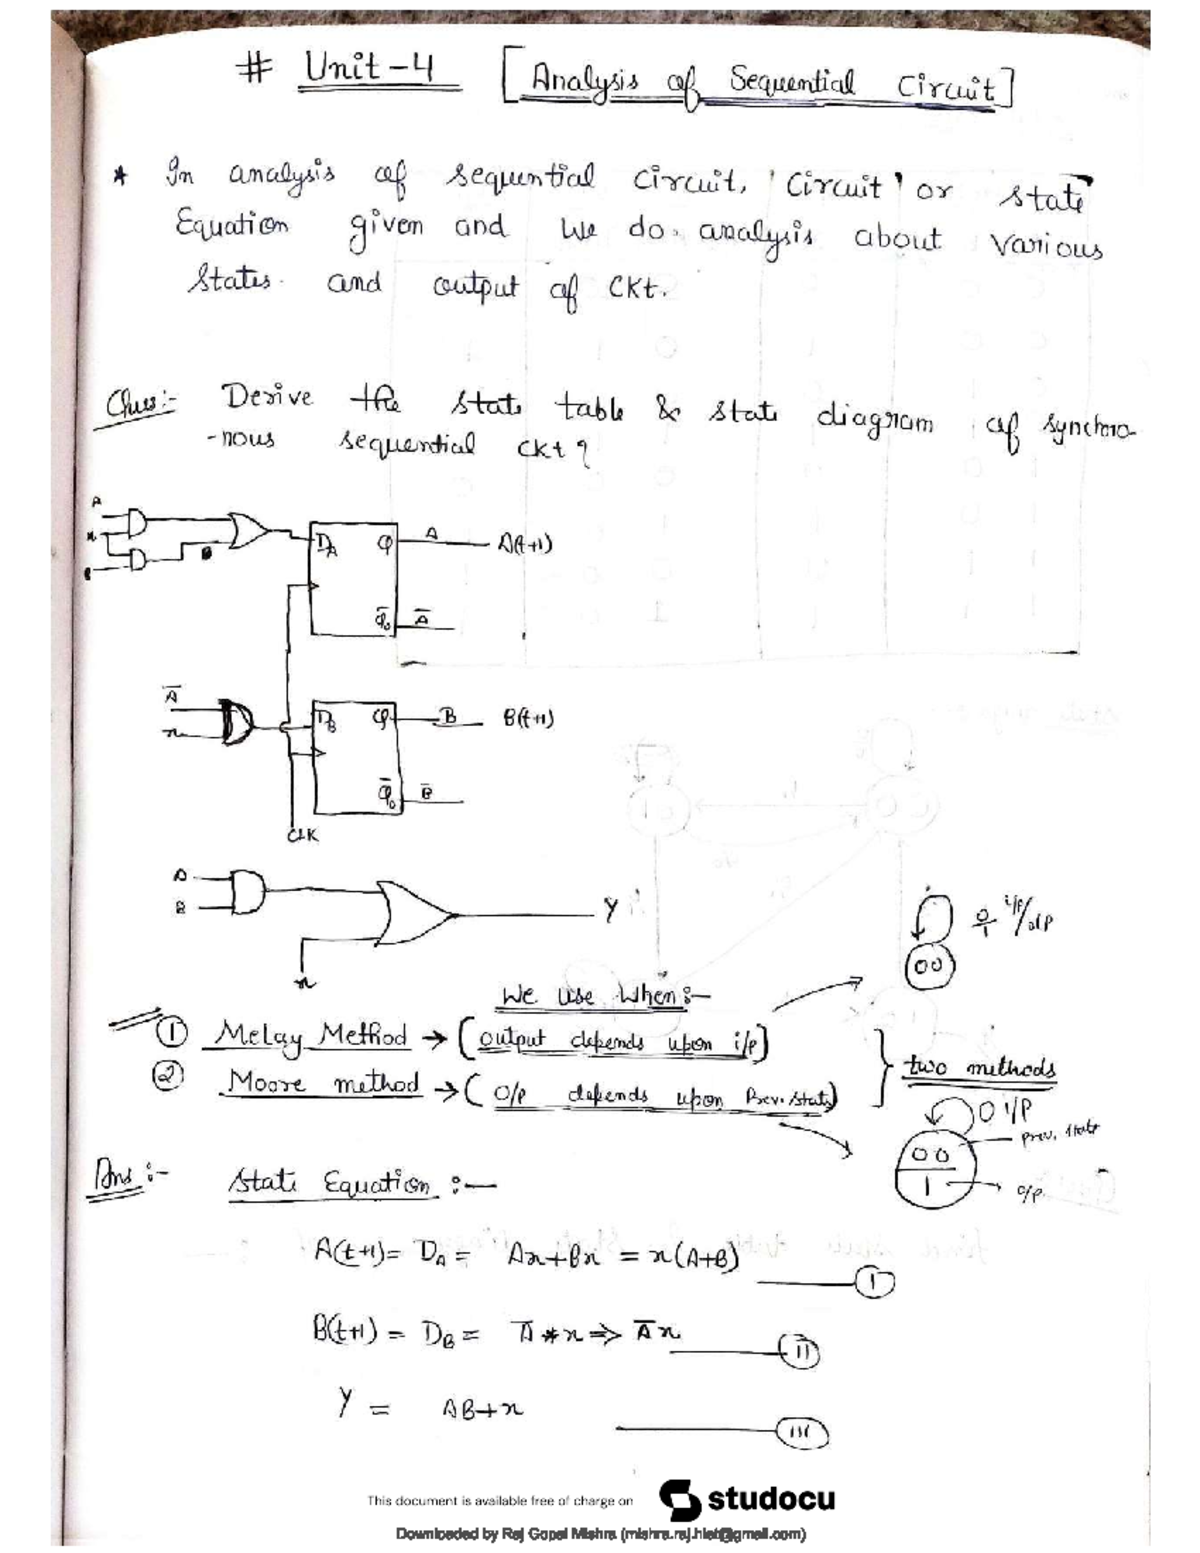 # Unit-4 [Analysis of Sequential Circuit]
* In analysis of sequential circuit, 'circuit' or state
Equation given and we do. analysis about various
states. and output of ckt.
Ques:- Derive the state table & state diagram of synchro-
-nous sequential ckt?
A
x
B
DA Q A A(t+1)
Q̅ A̅
A̅
x
DB Q B B(t+1)
Q̅ B̅
CLK
A
B
Y
x
0/1 i/p/o/p
00
We use when:-
① Melay Method → (output depends upon i/p)
② Moore method → (O/p depends upon Prev. state)
} two methods
0 i/P
00 prev. state
1 → o/p.
Ans:- State Equation :-
A(t+1) = DA = Ax+Bx = x(A+B) ——— I
B(t+1) = DB = A̅ * x ⇒ A̅x ——— II
Y = AB+x ——— III
This document is available free of charge on studocu
Downloaded by Raj Gopal Mishra (mishra.raj.hiet@gmail.com)